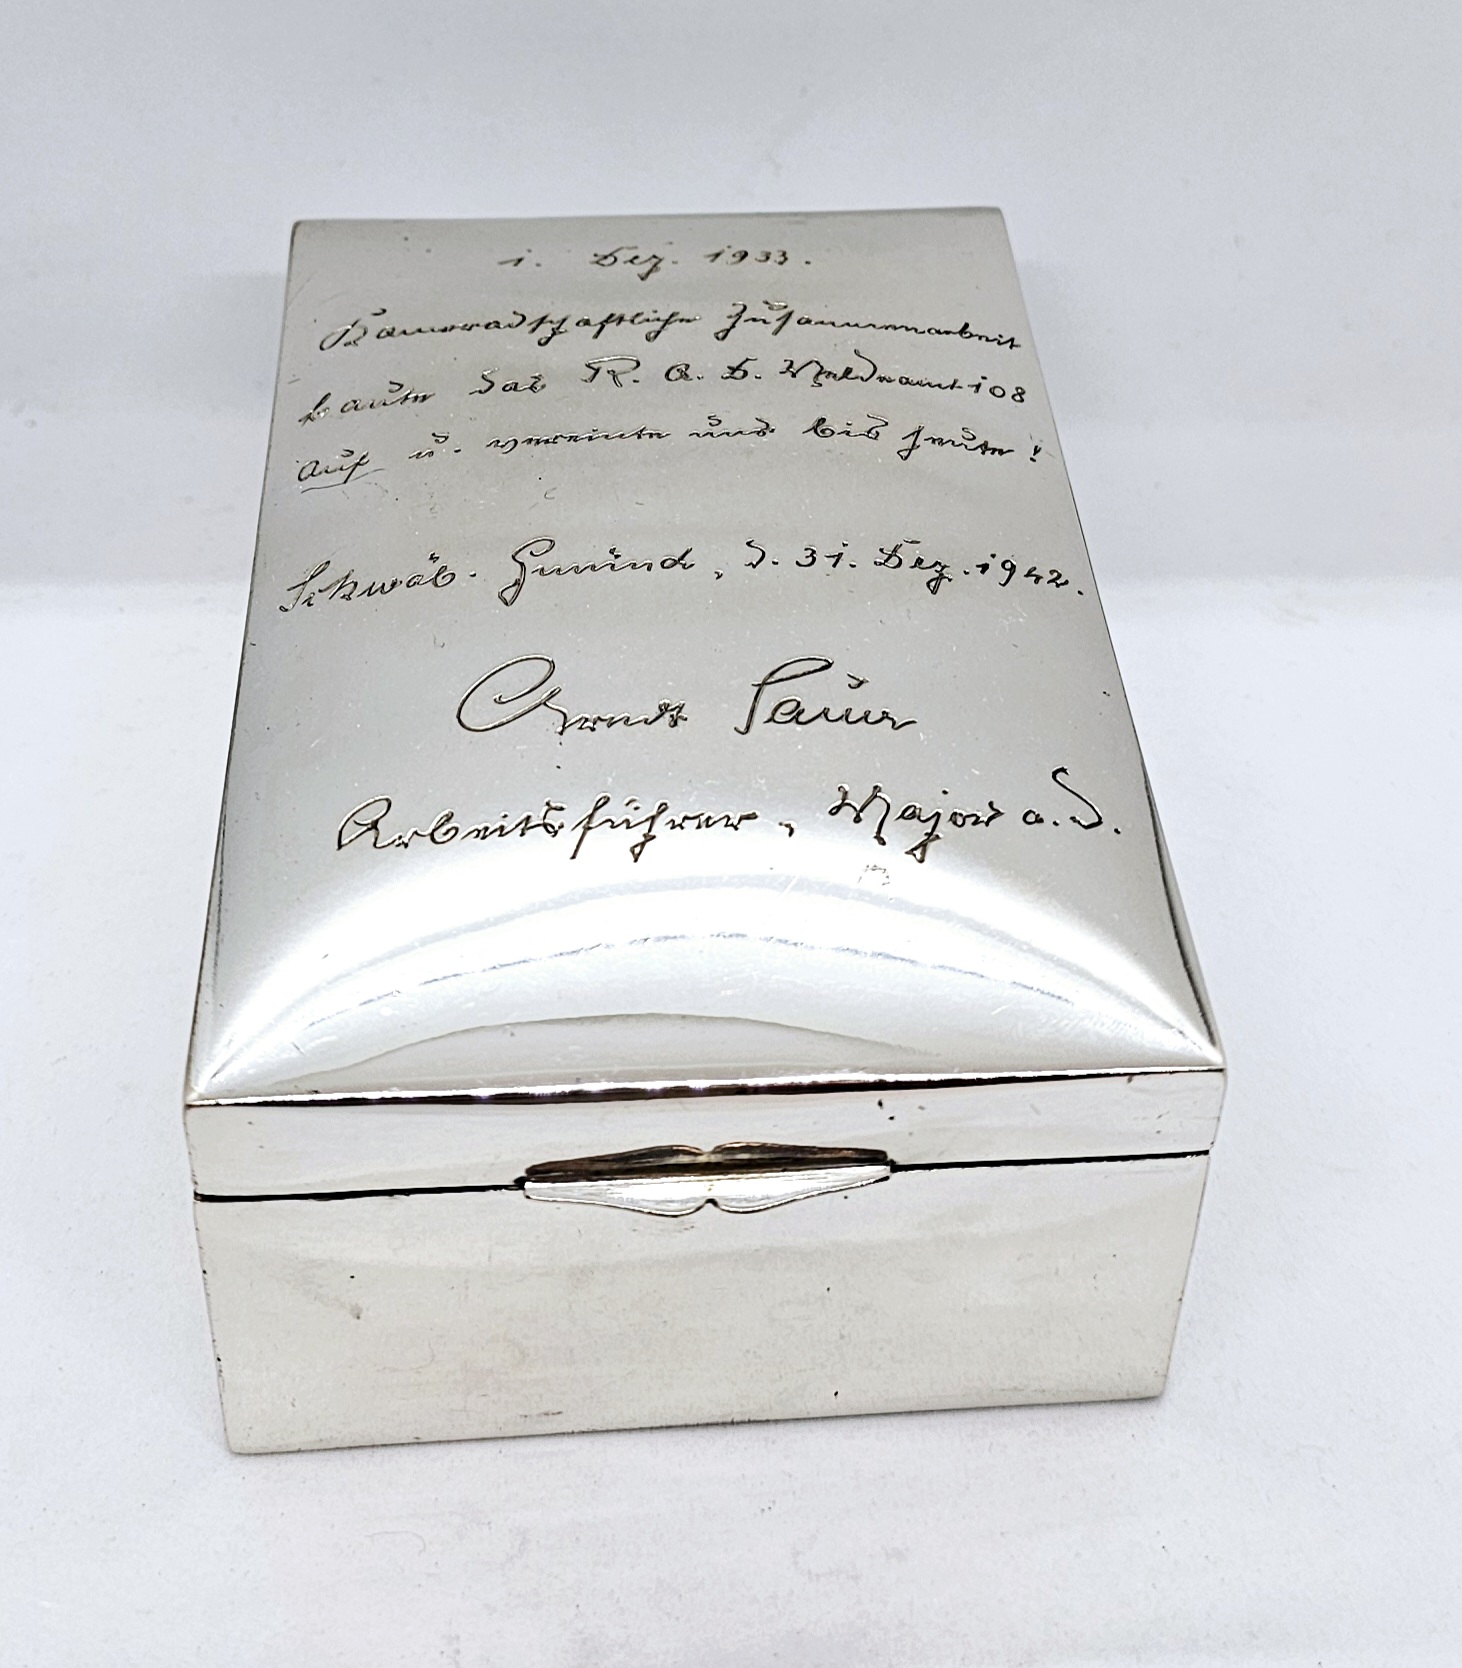 1. Dez. 1933.
Kameradschaftliche Zusammenarbeit
baute das R. A. D. Meldeamt 108
auf u. vereinte uns bis heute!
Schwäb. Gmünd, d. 31. Dez. 1942.
Arndt Saur
Arbeitsführer, Major a. D.